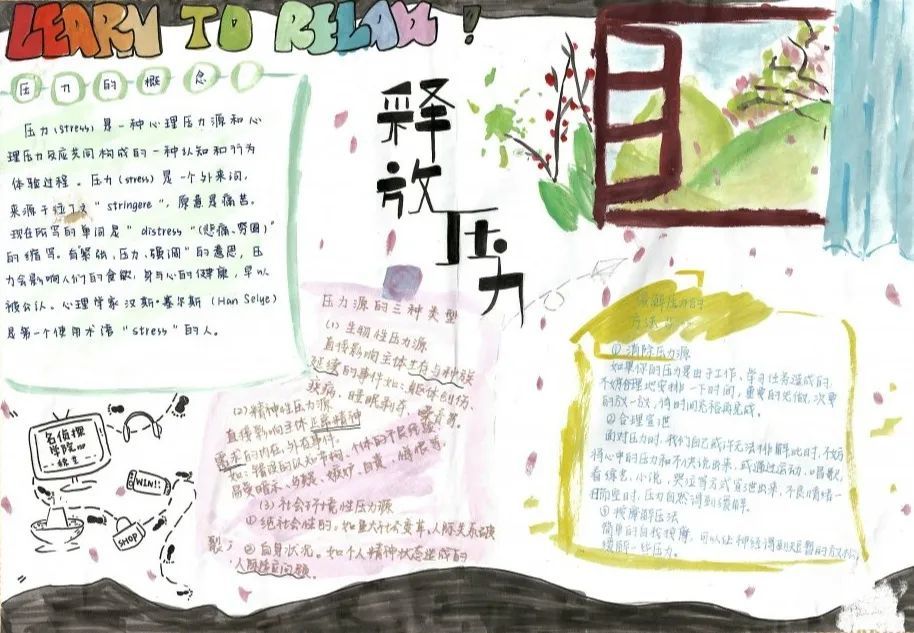 LEARN TO RELAX !
压力的概念
释放压力
压力(stress)是一种心理压力源和心
理压力反应共同构成的一种认知和行为
体验过程。压力(stress)是一个外来词,
来源于拉丁文"stringere",原意是痛苦。
现在所写的单词是"distress"(悲痛、穷困)
的缩写。有"紧张、压力、强调"的意思,压
力会影响人们的食欲,身与心的健康,早以
被公认。心理学家汉斯·塞尔斯(Han Selye)
是第一个使用术语"stress"的人。
名侦探
学院
WIN!!
SHOP
压力源的三种类型
(1)生物性压力源
直接影响主体生存与种族
延续的事件如:躯体创伤、
疾病、睡眠剥夺、噪音等。
(2)精神性压力源
直接影响主体正常精神
需求的内在、外在事件。
如:错误的认知平构、个体的不良经验
易受暗示、多疑、嫉妒、自责、悔恨等。
(3)社会环境性压力源
①绝社会性的,如重大社会变革、人际关系破
裂;②自身状况。如个人精神状态造成的
人际适应问题。
缓解压力的
方法
①消除压力源
如果你的压力是由于工作,学习任务造成的,
不妨合理地安排一下时间,重要的先做,次要
的放一放,待时间充裕再完成。
②合理宣泄
面对压力时,我们自己或许无法排解此时,不妨
将心中的压力和不快说出来,或通过运动、唱歌、
看综艺、小说,哭泣等方式宣泄出来,不良情绪一
扫而空时,压力自然得到缓解。
③按摩解压法
简单的自我按摩,可以让神经得到短暂的放松,
缓解一些压力。